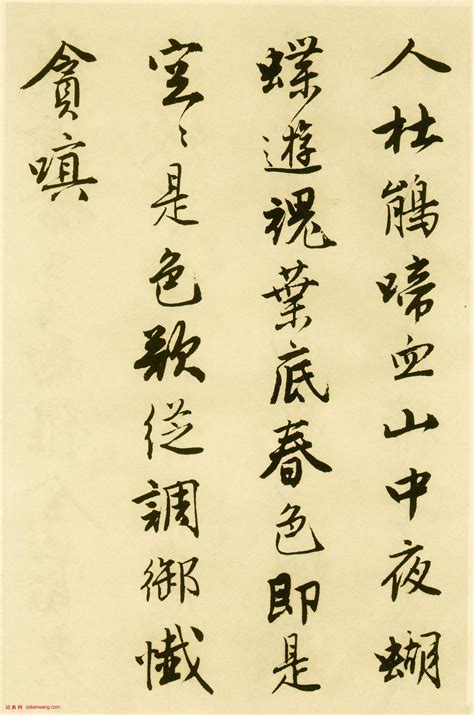 人杜鵑啼血山中夜蝴
蝶遊魂葉底春色即是
空〻是色欲從調御懺
貪嗔
词典网 cidianwang.com